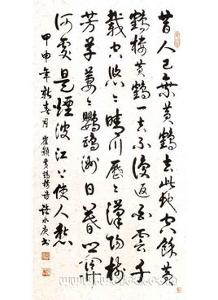 昔人已乘黄鶴去此地空余黄
鶴樓黄鶴一去不復返白雲千
載空悠悠晴川歷歷漢陽樹
芳草萋萋鸚鵡洲日暮鄉關
何處是煙波江上使人愁
甲申年 春月 崔顥黄鶴樓詩 書